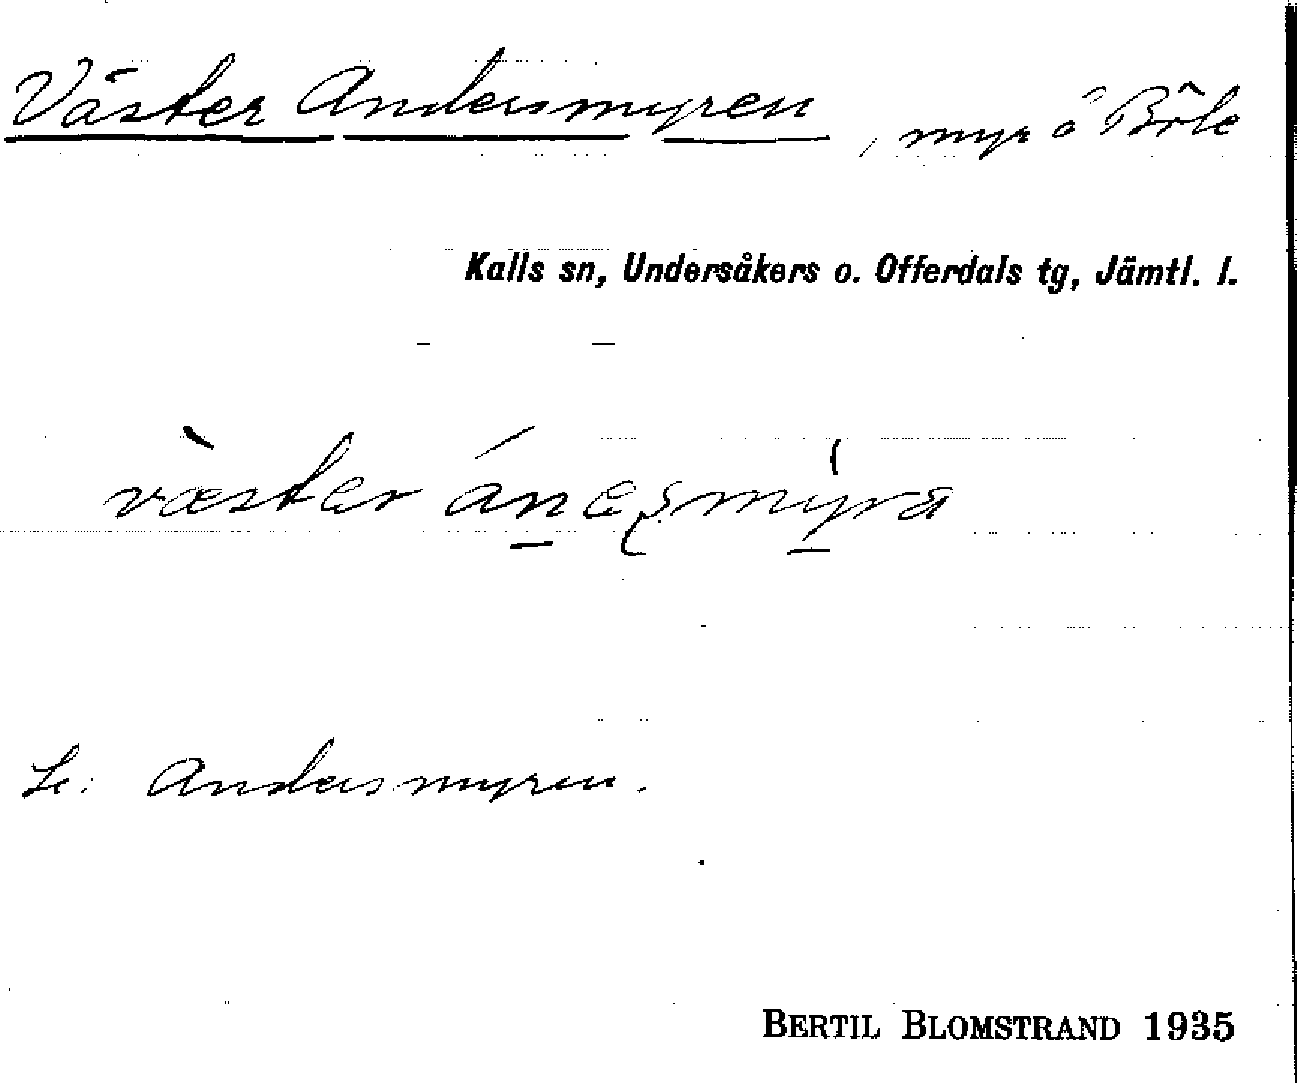 Väster Andersmyren, myr å Böle
Kalls sn, Undersåkers o. Offerdals tg, Jämtl. l.
væster ánesmyra
Se: Andersmyren.
BERTIL BLOMSTRAND 1935